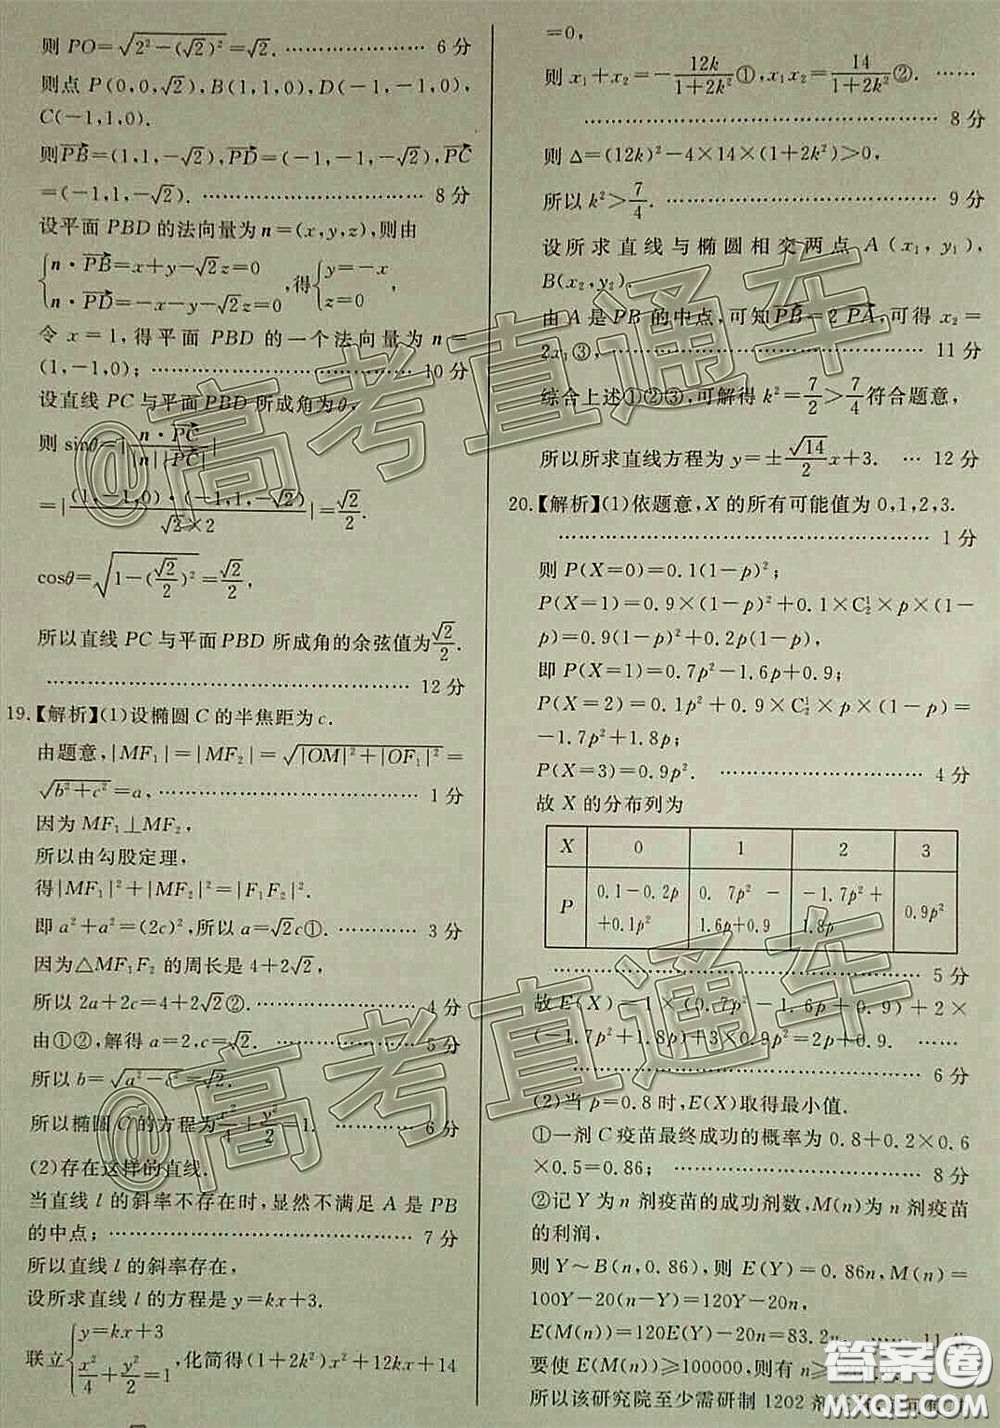 则 PO=√(2²-(√2)²)=√2. …………… 6 分
则点 P(0,0,√2),B(1,1,0),D(-1,-1,0),
C(-1,1,0).
则PB=(1,1,-√2),PD=(-1,-1,-√2),PC
=(-1,1,-√2). …………………… 8 分
设平面 PBD 的法向量为 n=(x,y,z),则由
{n·PB=x+y-√2z=0
n·PD=-x-y-√2z=0 ,得{y=-x
z=0 ,
令 x=1,得平面 PBD 的一个法向量为 n=
(1,-1,0); …………………… 10 分
设直线 PC 与平面 PBD 所成角为θ,
则 sinθ=|n·PC/|n||PC||
=|(1,-1,0)·(-1,1,-√2)/√2×2|=√2/2.
cosθ=√(1-(√2/2)²)=√2/2,
所以直线 PC 与平面 PBD 所成角的余弦值为√2/2.
…………………………………… 12 分
19.【解析】(1)设椭圆 C 的半焦距为 c.
由题意,|MF₁|=|MF₂|=√(|OM|²+|OF₁|²)=
√(b²+c²)=a, …………………… 1 分
因为 MF₁⊥MF₂,
所以由勾股定理,
得|MF₁|²+|MF₂|²=|F₁F₂|².
即 a²+a²=(2c)²,所以 a=√2c①. ………… 3 分
因为△MF₁F₂ 的周长是 4+2√2,
所以 2a+2c=4+2√2②. …………… 4 分
由①②,解得 a=2,c=√2. …………… 5 分
所以 b=√(a²-c²)=√2.
所以椭圆 C 的方程为x²/4+y²/2=1. ………… 6 分
(2)存在这样的直线.
当直线 l 的斜率不存在时,显然不满足 A 是 PB
的中点; …………………………… 7 分
所以直线 l 的斜率存在,
设所求直线 l 的方程是 y=kx+3.
联立{y=kx+3
x²/4+y²/2=1 ,化简得(1+2k²)x²+12kx+14
=0,
则 x₁+x₂=-12k/(1+2k²)①,x₁x₂=14/(1+2k²)②. ……
…………………………………… 8 分
则 Δ=(12k)²-4×14×(1+2k²)>0,
所以 k²>7/4. …………………………… 9 分
设所求直线与椭圆相交两点 A(x₁,y₁),
B(x₂,y₂),
由 A 是 PB 的中点,可知PB=2PA,可得 x₂=
2x₁③, …………………………… 11 分
综合上述①②③,可解得 k²=7/2>7/4符合题意,
所以所求直线方程为 y=±√14/2x+3. … 12 分
20.【解析】(1)依题意,X 的所有可能值为 0,1,2,3.
…………………………………… 1 分
则 P(X=0)=0.1(1-p)²;
P(X=1)=0.9×(1-p)²+0.1×C₂¹×p×(1-
p),
即 P(X=1)=0.7p²-1.6p+0.9;
P(X=2)=0.1×p²+0.9×C₂¹×p×(1-p)=
-1.7p²+1.8p;
P(X=3)=0.9p². …………………… 4 分
故 X 的分布列为
X 0 1 2 3
P 0.1-0.2p+0.1p² 0.7p²-1.6p+0.9 -1.7p²+1.8p 0.9p²
…………………………………… 5 分
故 E(X)=1×(0.7p²-1.6p+0.9)+2×
(-1.7p²+1.8p)+3×0.9p²=2p+0.9. ……
…………………………………… 6 分
(2)当 p=0.8 时,E(X)取得最小值.
①一剂 C 疫苗最终成功的概率为 0.8+0.2×0.6
×0.5=0.86; …………………… 8 分
②记 Y 为 n 剂疫苗的成功剂数,M(n)为 n 剂疫苗
的利润,
则 Y~B(n,0.86),则 E(Y)=0.86n,M(n)=
100Y-20(n-Y)=120Y-20n,
E(M(n))=120E(Y)-20n=83.2n, …… 11 分
要使 E(M(n))≥100000,则有 n≥
所以该研究院至少需研制 1202 剂
@高考直通车
@高考直通车
答案圈
MXQE.COM